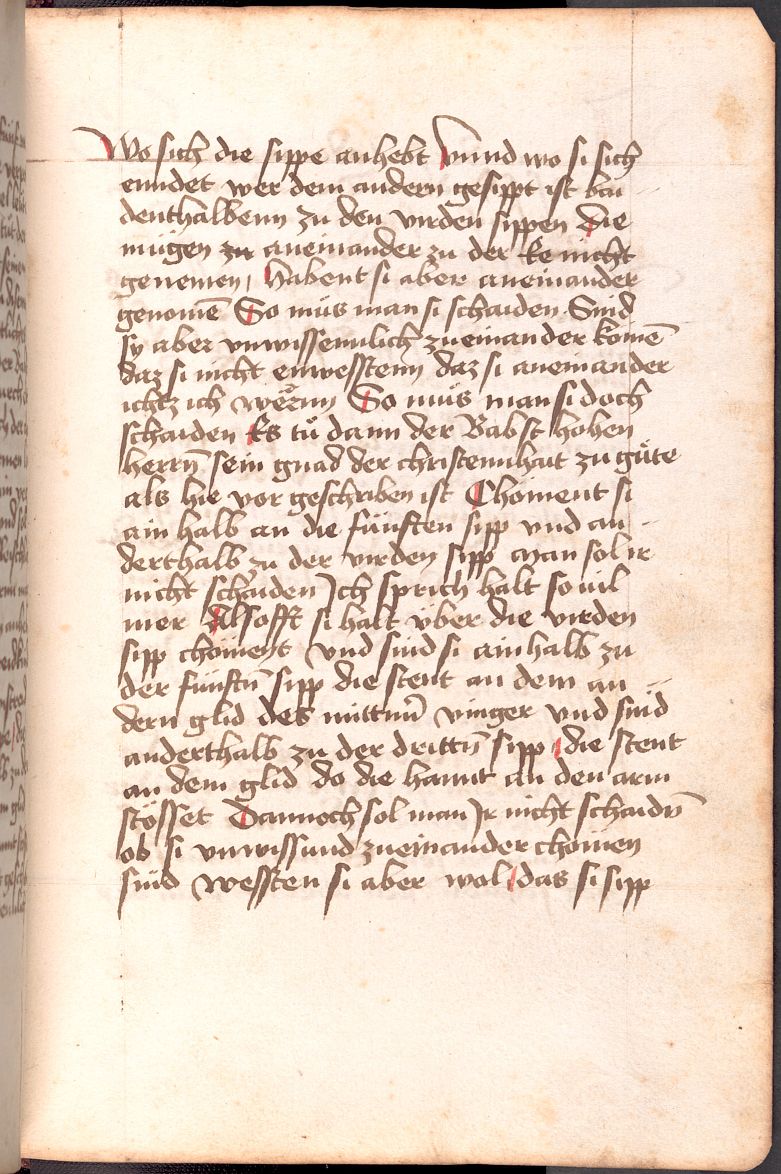 Wo sich die sippe anhebt vnnd wo si sich
enndet wer dem andern gesippt ist bai
denthalbenn zu den virden sippen Die
mügen zu aneinander zu der Ee nicht
genemen / habent si aber aneinander
genomē So müs man si schaiden Sind
sy aber vnwissennlich zueinander komē
daz si nicht enwesstenn daz si aneinander
ichtz ich So müs man si doch
schaiden Es tů dann der Babst hohen
herrn̄ sein gnad der christennhait zu gůte
als hie vor geschriben ist Chöment si
ain halb an die fünften sipp vnd an
derthalb zu der virden sipp man sol ir
nicht schaiden Ich sprich halt souil
mer Alsofft si halt vber die virden
sipp chöment vnd sind si ainhalb zu
der fünftn̄ sipp die stent an dem an
dern glid des mittnn̄ vinger vnd sind
anderthalb zu der drittn̄ sipp / die stent
an dem glid do die hannt an den arm
stösset Dannoch sol man Jr nicht schaidn̄
ob si vnwissund zueinander chömen
sind wessten si aber wol / das si sipp